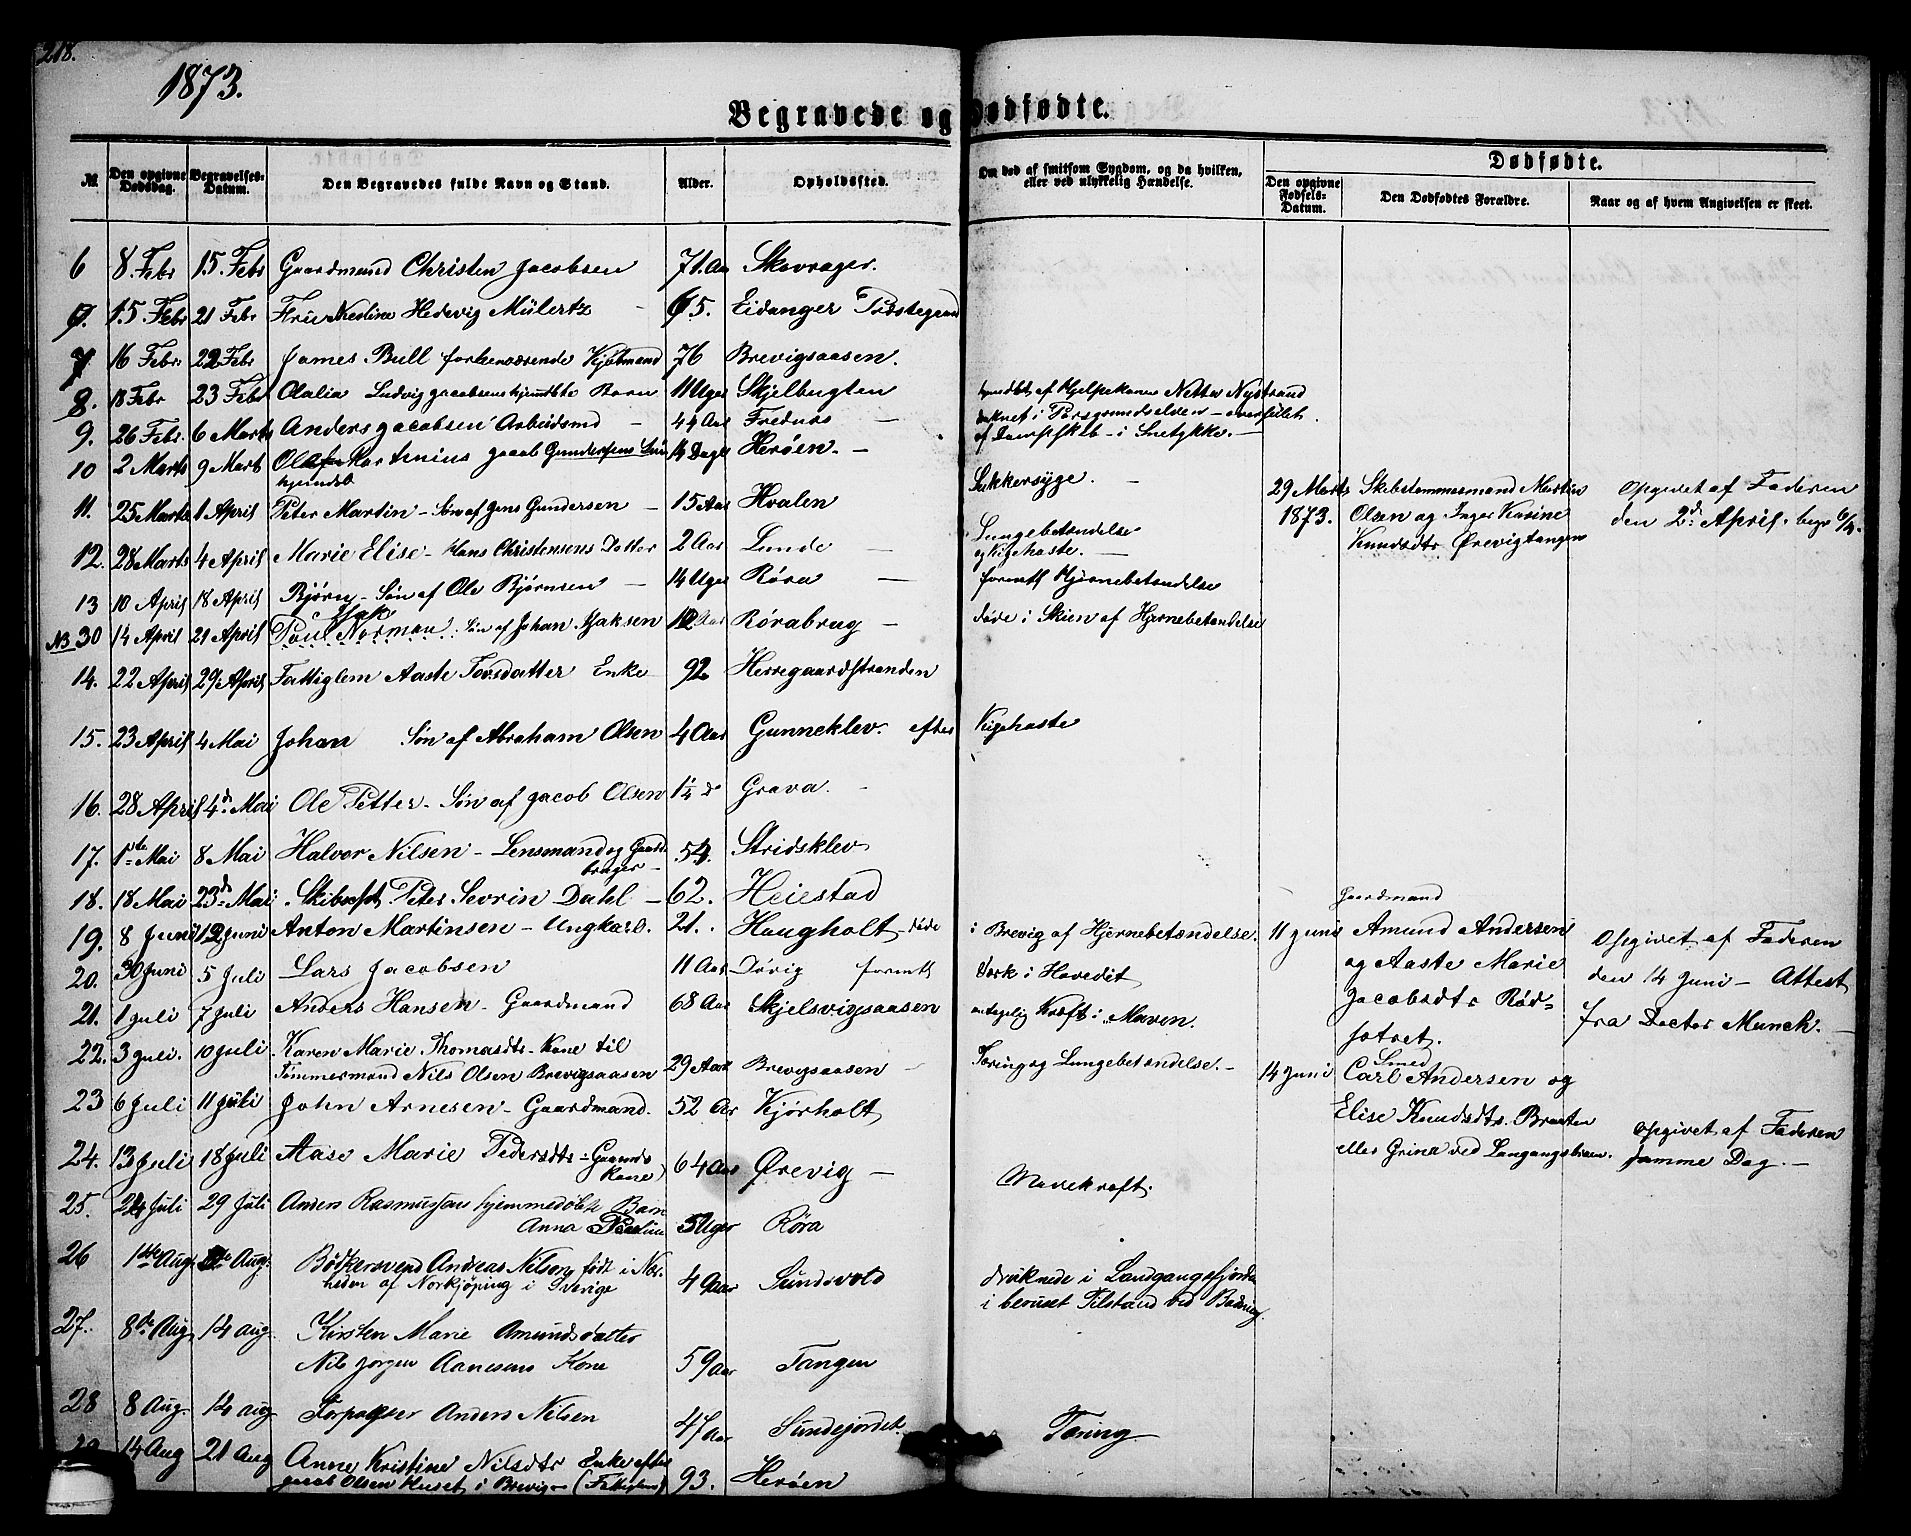 218.
1873.
Begravede og Dødfødte.
№ Den opgivne Dødsdag. Begravelses-Datum. Den Begravedes fulde Navn og Stand. Alder. Opholdssted. Om død af smitsom Sygdom, og da hvilken, eller ved ulykkelig Hændelse.
Dødfødte.
Den opgivne Fødsels-Datum. Den Dødfødtes Forældre. Naar og af hvem Angivelsen er skeet.
6 8. Febr 15. Febr Gaardmand Christen Jacobsen 71. Aar Skavrager.
15. Febr 21 Febr Fru Hedevig Mülertz 65. Eidanger
7 16 Febr. 22 Febr James Bull forhenværende Kjøbmand 76 Brevigsaasen.
8. 18 Febr 23 Febr Olalia Ludvig Jacobsens hjemdbte Barn 11 Uger Skjelbugten
9. 26 Febr. 6 Marts Anders Jacobsen Arbeidsmd 44 Aar Frednæs druknet i Porsgrundselven
af Dampskib i
10 2 Marts 9 Marts Martinius Jacob Gundersens Søn 14 Dage Herøen.
hjemdøb
11. 25 Marts 1 April Peter Martin - Søn af Jens Gundersen 15 Aar Hvalen Sukkersyge.
12. 28 Marts 4 April Marie Elise - Hans Christensens Datter 2 Aar Lunde Lungebetændelse
og Kighoste.
13 10 April 18 April Bjørn - Søn af Ole Bjørnsen 14 Uger Røra formentl Hjernebetændelse
NB 30 14 April 21 April Poul Norman: Søn af Johan Isaksen 12 Aar Rørabrug døde i Skien af Hjernebetændelse
14. 22 April 29 April Fattiglem Aaste Torsdatter Enke 92 Herregaardstranden
15. 23 April 4 Mai Johan Søn af Abraham Olsen 4 Aar Gunneklev. efter Kighoste
16. 28 April 4d Mai Ole Petter - Søn af Jacob Olsen 1¼ d Grava.
17. 1ste Mai 8 Mai Halvor Nilsen - Lensmand og Gaard-
bruger - 54. Stridsklev
18. 18 Mai 23d Mai Peter Sevrin Dahl 62. Heiestad
19. 8 Juni 12 Juni Anton Martinsen - Ungkarl. 21. Haugholt døde i Brevig af Hjernebetændelse.
20. 30 Juni 5 Juli Lars Jacobsen 11 Aar Dørig formentl Værk i Hovedet
21. 1 Juli 7 Juli Anders Hansen - Gaardmand 68 Aar Skjelsvigsaasen Kræft i Maven.
22. 3 Juli. 10 Juli Karen Marie Thomasdtr - Kone til
Tømmermand Nils Olsen Brevigsaasen 29 Aar Brevigsaasen Tæring og Lungebetændelse.
23 6 Juli 11 Juli John Arnesen - Gaardmand. 52 Aar Kjørholt
24. 13 Juli 18 Juli Aase Marie Pedersdtr - Gaardmds
Kone 64 Aar Ørevig Mavekræft.
25. 24 Juli 29 Juli Anders Rasmussens hjemmedøbte Barn
Anna 5 Uger Røra
26 1ste Aug. Aug. Bødkersvend Andreas Nilson født i Nær-
heden af Norkjöping i Sverige 4 Aar Sundsvold druknede i Landgangsfjorden
i beruset Tilstand ved Badning
27. 8de Aug 14 Aug. Kirsten Marie Amundsdatter
Nils Jørgen Aanesens Kone 59 Aar Tangen
28 8 Aug. 14 Aug Anders Nilsen 47 Aar Sundejordet. Tæring
14 Aug 21 Aug Anne Kristine Nilsdtr Enke efter
Jacob Olsen Huset i Brevig (Fattiglem) 93. Herøen
29 Marts Skibstømmermand Martin Opgivet af Faderen
1873. Olsen og Inger Karine den 2d. April. begr 6/4.
Knudsdtr Ørevigtangen
Gaardmand
11 Juni Amund Andersen Opgivet af Faderen
og Aaste Marie den 14 Juni - Attest
Jacobsdtr Rød- fra Doctor Munck.
Smed
14 Juni Carl Andersen og
Elise Knudsdtr. Opgivet af Faderen
eller Grina ved samme Dag.